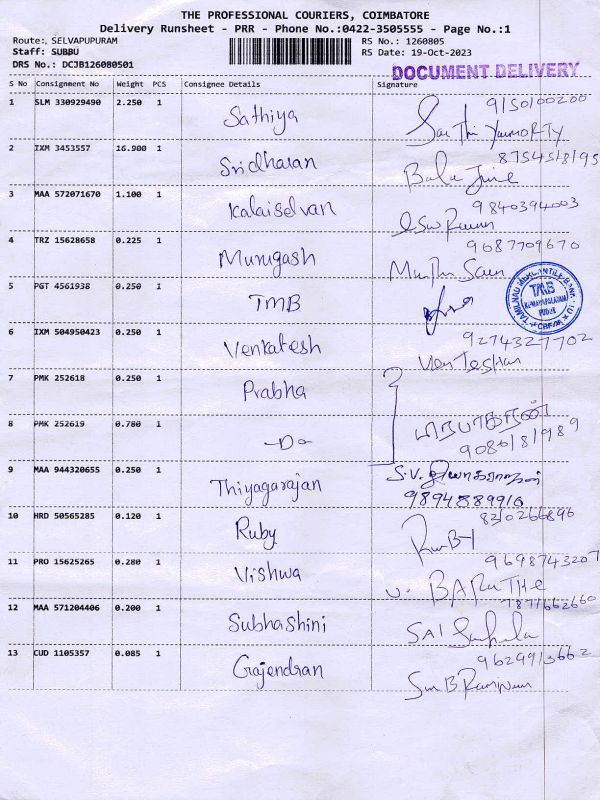 THE PROFESSIONAL COURIERS, COIMBATORE
Delivery Runsheet - PRR - Phone No.:0422-3505555 - Page No.:1
Route:, SELVAPUPURAM RS No.: 1260805
Staff: SUBBU RS Date: 19-Oct-2023
DRS No.: DCJB126080501
DOCUMENT DELIVERY
S No Consignment No Weight PCS Consignee Details Signature
1 SLM 330929490 2.250 1 Sathiya 9150100200
2 IXM 3453557 16.900 1 Sridharan
Bala
3 MAA 572071670 1.100 1 Kalaiselvan 9840394003
4 TRZ 15628658 0.225 1 Murugash 9687709670
5 PGT 4561938 0.250 1 TMB
TAMILNAD MERCANTILE BANK
TMB
6 IXM 504950423 0.250 1 Venkatesh 9274327702
7 PMK 252618 0.250 1 Prabha
8 PMK 252619 0.780 1 -Do-
9 MAA 944320655 0.250 1 Thiyagarajan S.V. தியாகராஜன்
10 HRD 50565285 0.120 1 Ruby 8210266896
11 PRO 15625265 0.280 1 Vishwa 9698743207
12 MAA 571204406 0.200 1 Subhashini 7871662660
SAI
13 CUD 1105357 0.085 1 Gajendran 9629913662